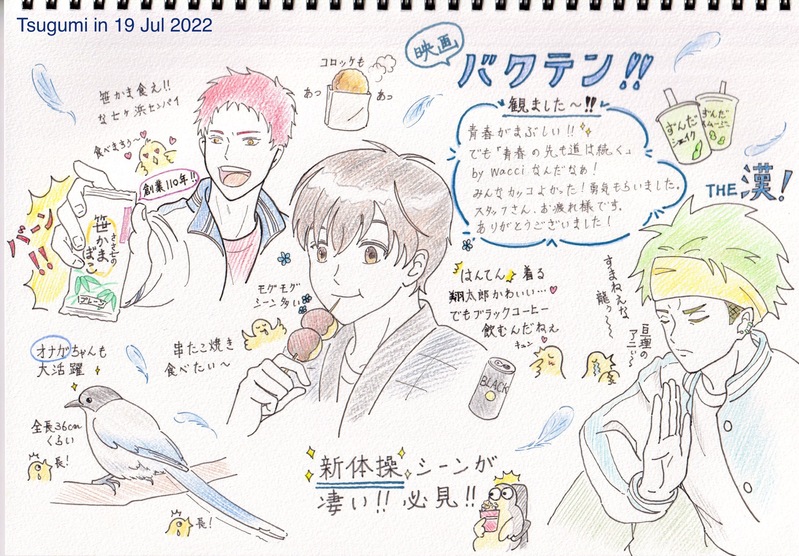 Tsugumi in 19 Jul 2022
映画
バクテン!!
観ました〜!!
青春がまぶしい!!
でも「青春の先も道は続く」
by wacci なんだなぁ!
みんなカッコよかった!勇気もらいました。
スタッフさん、お疲れ様です。
ありがとうございました!
コロッケも
あっ
あっ
笹かま食え!!
な七ヶ浜センパイ
食べまちゅ〜
創業110年!!
バーン!!
笹かまぼこ
プレーン
ずんだ
シェイク
ずんだ
THE 漢!
モグモグ
シーン多い
はんてん着る
翔太郎かわいい…
でもブラックコーヒー
飲むんだねぇ
キュン
BLACK
すまねえな
龍ぅ〜〜
亘理の
アニィ〜
串たこ焼き
食べたい〜
オナガちゃんも
大活躍
全長36cm
くらい
長!
長!
新体操シーンが
凄い!!必見!!